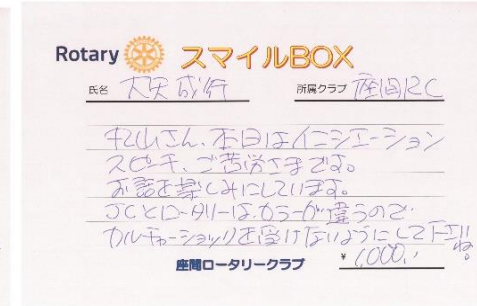 Rotary スマイルBOX
氏名 大矢 成行 所属クラブ 座間RC
松山さん、本日はイニシエーション
スピーチ、ご苦労さまです。
お話を楽しみにしています。
JCとロータリーは、カラーが違うので
カルチャーショックを受けないようにして下さいね。
座間ロータリークラブ ¥ 1,000.-